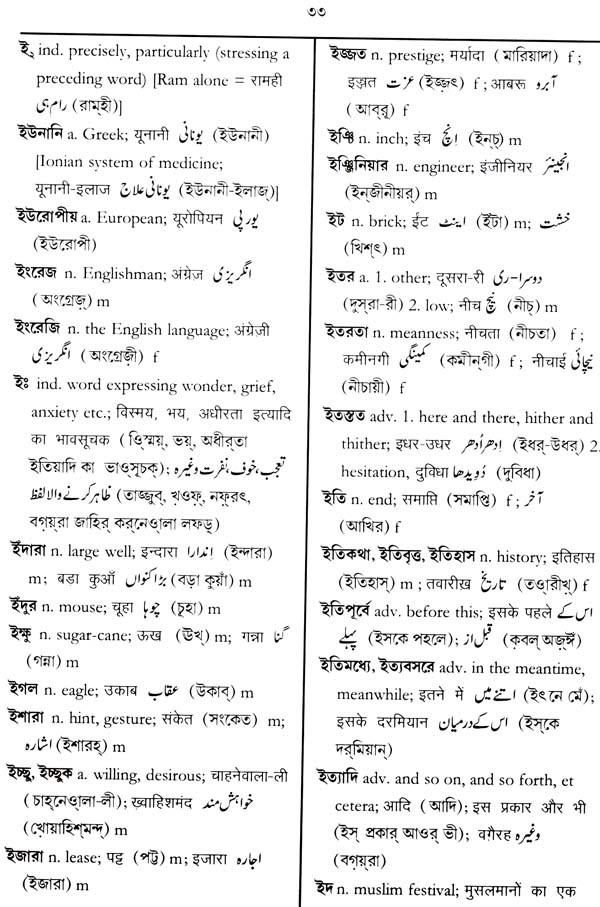 ৩৩
ই, ind. precisely, particularly (stressing a
preceding word) [Ram alone = रामही
رام ہی (রাম্‌হী)]
ইউনানি a. Greek; यूनानी یونانی (ইউনানী)
[Ionian system of medicine;
यूनानी-इलाज یونانی علاج (ইউনানী-ইলাজ্)]
ইউরোপীয় a. European; यूरोपियन یورپی
(ইউরোপী)
ইংরেজ n. Englishman; अंग्रेज़ انگریزی
(অংগ্রেজ়) m
ইংরেজি n. the English language; अंग्रेज़ी
انگریزی (অংগ্রেজ়ী) f
ইঃ ind. word expressing wonder, grief,
anxiety etc.; विस्मय, भय, अधीरता इत्यादि
का भावसूचक (ৱিস্ময়্, ভয়্, অধীর্‌তা
ইতিয়াদি কা ভাওসূচক্); تعجب، خوف، نفرت وغیرہ
ظاہر کرنے والا لفظ (তাজ্জুব্, খ়ওফ়্, নফ়্‌রৎ,
বগ়য়্‌রা জাহির কর্‌নেওা়লা লফ়্‌ড়্)
ইঁদারা n. large well; इन्दारा اندارا (ইন্দারা)
m; बडा कुआँ بڑا کنواں (বড়া কুয়াঁ) m
ইঁদুর n. mouse; चूहा چوہا (চূহা) m
ইক্ষু n. sugar-cane; ऊख (ঊখ্) m; गन्ना گنا
(গন্না) m
ইগল n. eagle; उकाब عقاب (উকাব্) m
ইশারা n. hint, gesture; संकेत (সংকেত) m;
اشارہ (ইশারহ্) m
ইচ্ছু, ইচ্ছুক a. willing, desirous; चाहनेवाला-ली
(চাহ্‌নেওা়লা-লী); ख्वाहिशमंद خواہش مند
(খো়য়াহিশ্‌মন্দ্) m
ইজারা n. lease; पट्ट (পট্ট) m; इजारा اجارہ
(ইজারা) m
ইজ্জত n. prestige; मर्यादा (মারিয়াদা) f;
इज़्ज़त عزت (ইজ়্জ়ৎ) f; आबरू آبرو
(আব্‌রূ) f
ইঞ্চি n. inch; इंच انچ (ইন্‌চ্) m
ইঞ্জিনিয়ার n. engineer; इंजीनियर انجینئر
(ইন্‌জীনীয়র্) m
ইট n. brick; ईट اینٹ (ইঁটা) m; خشت
(খিশ্‌ৎ) m
ইতর a. 1. other; दूसरा-री دوسرا-ری
(দুস্‌রা-রী) 2. low; नीच نیچ (নীচ্) m
ইতরতা n. meanness; नीचता (নীচতা) f;
कमीनगी کمینگی (কমীন্‌গী) f; नीचाई نیچائی
(নীচায়ী) f
ইতস্তত adv. 1. here and there, hither and
thither; इधर-उधर ادھر اُدھر (ইধর্-উধর্) 2.
hesitation, दुविधा دُویدھا (দুবিধা)
ইতি n. end; समाप्ति (সমাপ্তি) f; آخر
(আখির) f
ইতিকথা, ইতিবৃত্ত, ইতিহাস n. history; इतिहास
(ইতিহাস্) m; तवारीख़ تاریخ (তওা়রীখ়্) f
ইতিপূর্বে adv. before this; इसके पहले اس کے
پہلے (ইসকে পহলে); قبل از (ক়বল্ অজ়্ঈ)
ইতিমধ্যে, ইত্যবসরে adv. in the meantime,
meanwhile; इतने में اتنے میں (ইৎনে মেঁ);
इसके दरमियान اس کے درمیان (ইস্‌কে
দর্‌মিয়ান্)
ইত্যাদি adv. and so on, and so forth, et
cetera; आदि (আদি); इस प्रकार और भी
(ইস্ প্রকার্ আওর্ ভী); वग़ैरह وغیرہ
(বগ়য়্‌রা)
ইদ n. muslim festival; मुसलमानों का एक